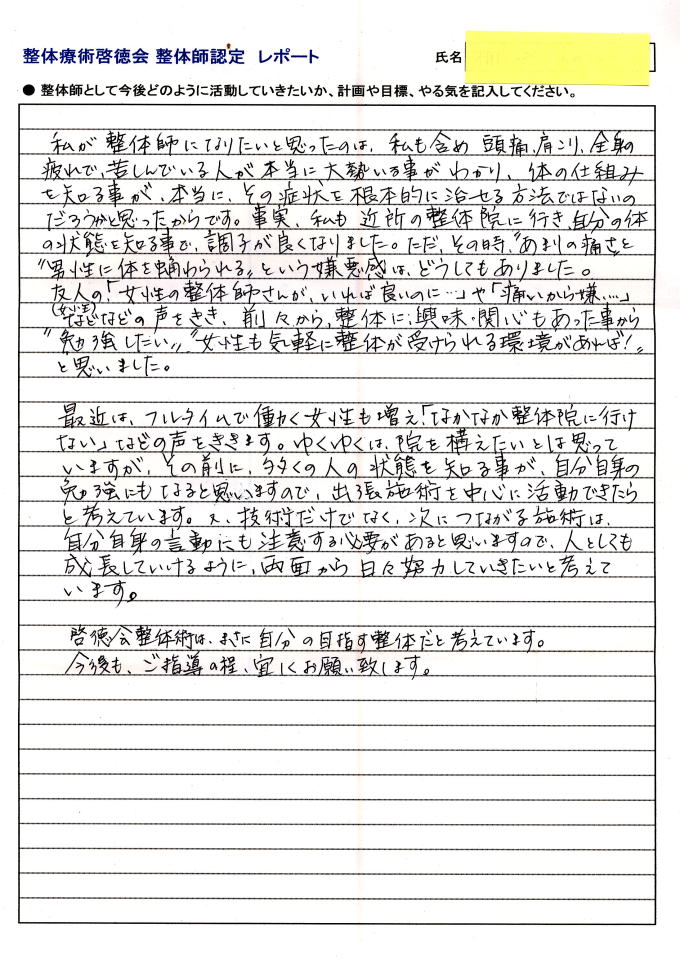 整体療術啓徳会 整体師認定 レポート
氏名
● 整体師として今後どのように活動していきたいか、計画や目標、やる気を記入してください。
私が整体師になりたいと思ったのは、私も含め頭痛、肩こり、全身の
疲れで、苦しんでいる人が本当に大勢いる事がわかり、体の仕組み
を知る事が、本当に、その症状を根本的に治せる方法ではないの
だろうかと思ったからです。事実、私も近所の整体院に行き、自分の体
の状態を知る事で、調子が良くなりました。ただ、その時、"あまりの痛さ"と
"男性に体を触わられる"という嫌悪感は、どうしてもありました。
友人の「女性の整体師さんが、いれば良いのに…」や「痛いから嫌…」
(女性)
などなどの声をきき、前々から、整体に興味・関心もあった事から
"勉強したい"、"女性も気軽に整体が受けられる環境があれば!"
と思いました。
最近は、フルタイムで働く女性も増え「なかなか整体院に行け
ない」などの声をききます。ゆくゆくは、院を構えたいとは思って
いますが、その前に、多くの人の状態を知る事が、自分自身の
勉強にもなると思いますので、出張施術を中心に活動できたら
と考えています。又、技術だけでなく、次につながる施術は、
自分自身の言動にも注意する必要があると思いますので、人としても
成長していけるように、両面から日々努力していきたいと考えて
います。
啓徳会整体術は、まさに自分の目指す整体だと考えています。
今後も、ご指導の程、宜しくお願い致します。